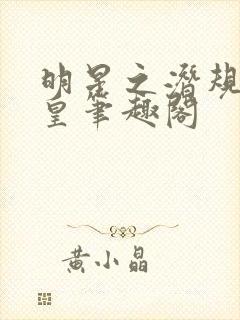 明星之潜规
皇笔趣阁
黄小晶